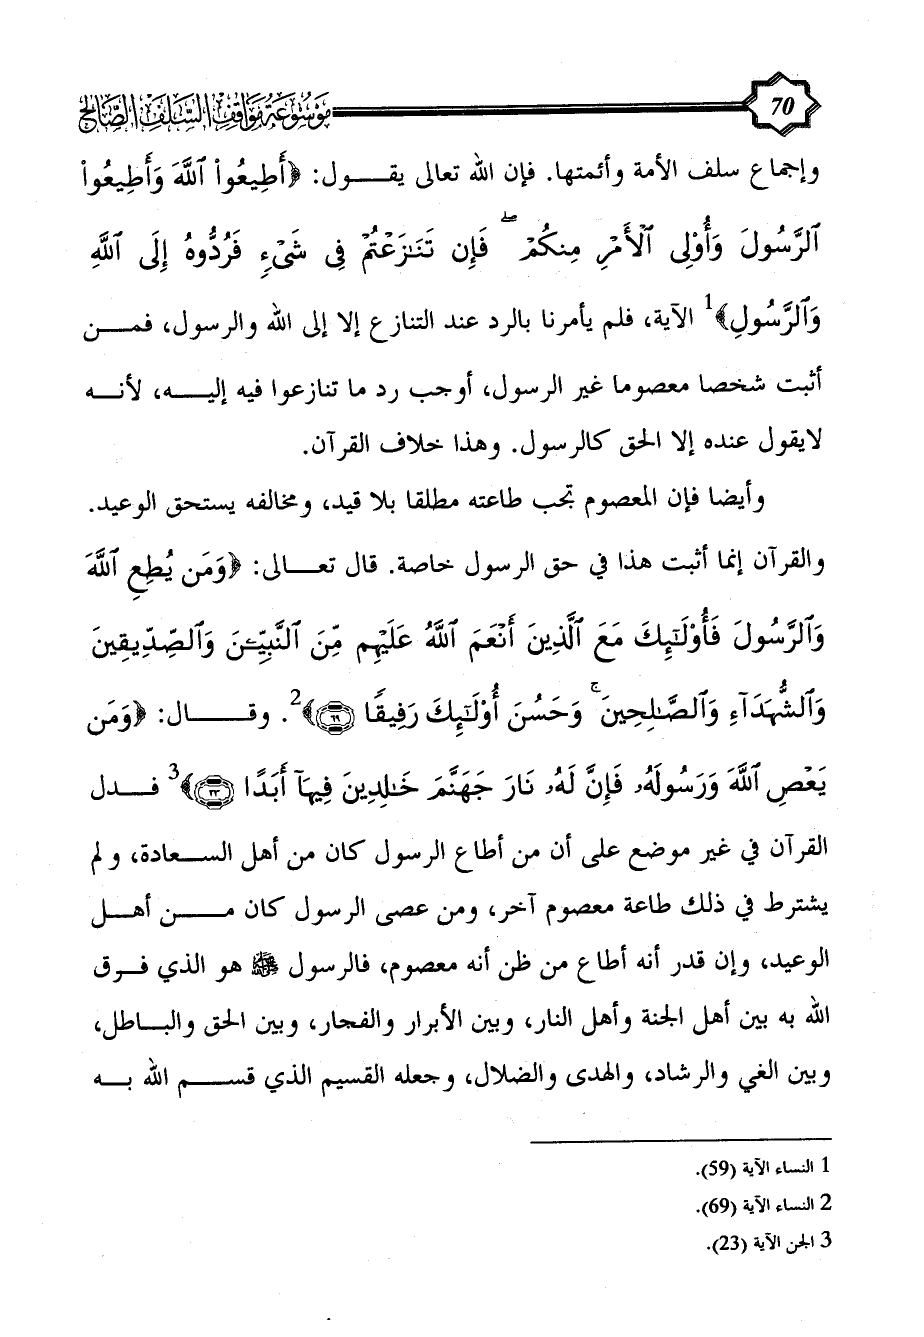 70
موسوعة مواقف السلف الصالح
وإجماع سلف الأمة وأئمتها. فإن الله تعالى يقـــول: ﴿أَطِيعُواْ ٱللَّهَ وَأَطِيعُواْ
ٱلرَّسُولَ وَأُوْلِى ٱلْأَمْرِ مِنكُمْ ۖ فَإِن تَنَٰزَعْتُمْ فِى شَىْءٍ فَرُدُّوهُ إِلَى ٱللَّهِ
وَٱلرَّسُولِ﴾1 الآية، فلم يأمرنا بالرد عند التنازع إلا إلى الله والرسول، فمـــن
أثبت شخصا معصوما غير الرسول، أوجب رد ما تنازعوا فيه إليـــه، لأنـــه
لايقول عنده إلا الحق كالرسول. وهذا خلاف القرآن.
وأيضا فإن المعصوم تجب طاعته مطلقا بلا قيد، ومخالفه يستحق الوعيد.
والقرآن إنما أثبت هذا في حق الرسول خاصة. قال تعـــالى: ﴿وَمَن يُطِعِ ٱللَّهَ
وَٱلرَّسُولَ فَأُوْلَٰٓئِكَ مَعَ ٱلَّذِينَ أَنْعَمَ ٱللَّهُ عَلَيْهِم مِّنَ ٱلنَّبِيِّۦنَ وَٱلصِّدِّيقِينَ
وَٱلشُّهَدَآءِ وَٱلصَّٰلِحِينَ ۚ وَحَسُنَ أُوْلَٰٓئِكَ رَفِيقًا ٦٩﴾2. وقـــال: ﴿وَمَن
يَعْصِ ٱللَّهَ وَرَسُولَهُۥ فَإِنَّ لَهُۥ نَارَ جَهَنَّمَ خَٰلِدِينَ فِيهَآ أَبَدًا ٢٣﴾3 فـــدل
القرآن في غير موضع على أن من أطاع الرسول كان من أهل الســـعادة، ولم
يشترط في ذلك طاعة معصوم آخر، ومن عصى الرسول كان مـــن أهـــل
الوعيد، وإن قدر أنه أطاع من ظن أنه معصوم، فالرسول ﷺ هو الذي فـــرق
الله به بين أهل الجنة وأهل النار، وبين الأبرار والفجار، وبين الحق والبـــاطل،
وبين الغي والرشاد، والهدى والضلال، وجعله القسيم الذي قســـم الله بـــه
1 النساء الآية (59).
2 النساء الآية (69).
3 الجن الآية (23).